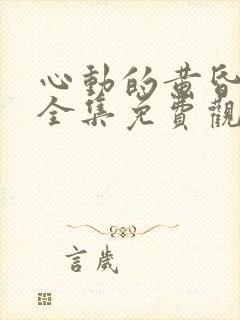 心動的黃昏
全集免費觀
言歲